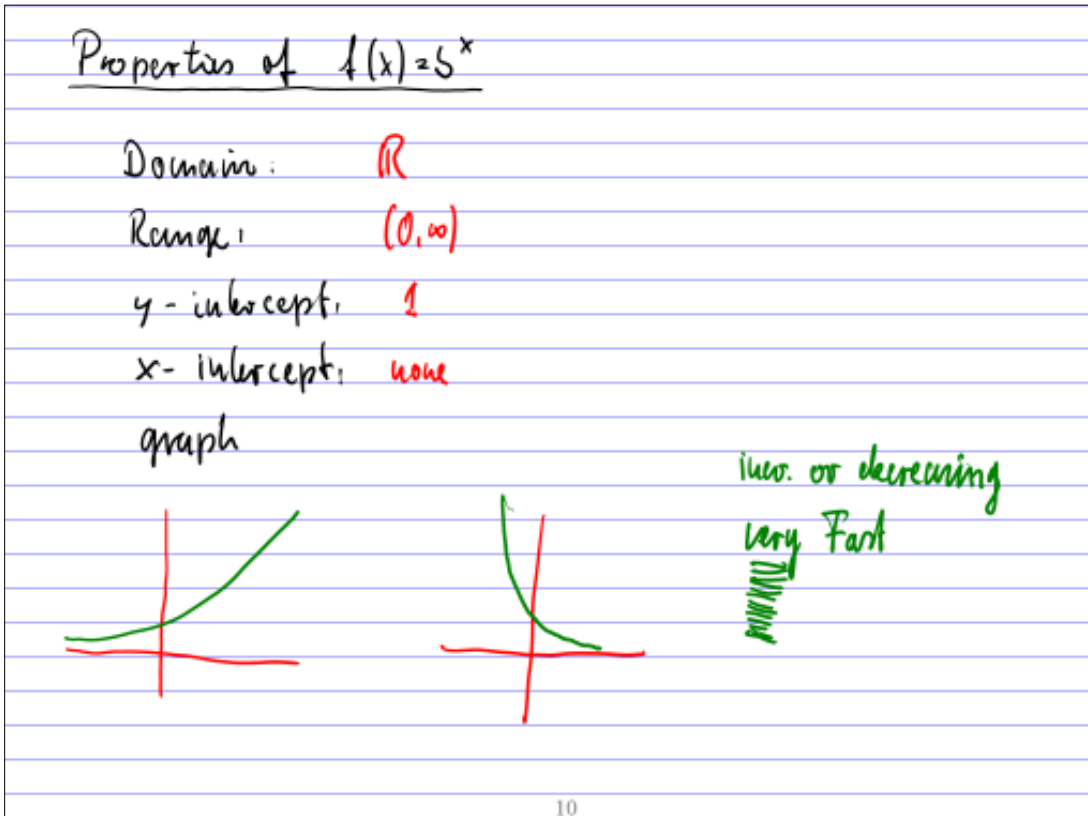 Properties of f(x)=b^x
Domain: ℝ
Range: (0,∞)
y-intercept: 1
x-intercept: none
graph
incr. or decreasing
very Fast
10